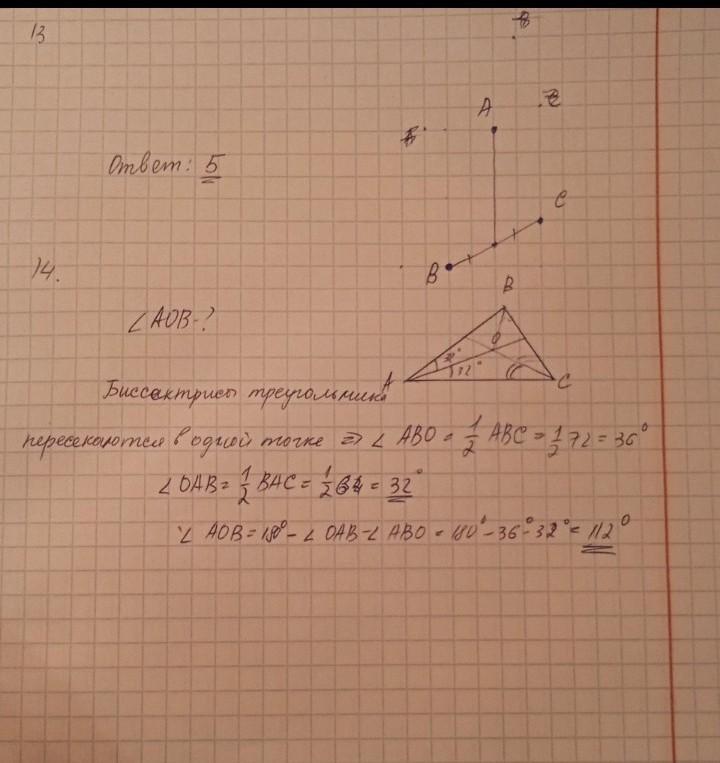 13
A
C
Ответ: 5
B
14.
B
∠AOB-?
O
32°
32°
A
C
Биссектрисы треугольника
пересекаются в одной точке => ∠ ABO = 1/2 ABC = 1/2 72 = 36°
∠ OAB = 1/2 BAC = 1/2 64 = 32°
∠ AOB = 180° - ∠ OAB - ∠ ABO = 180° - 36° - 32° = 112°